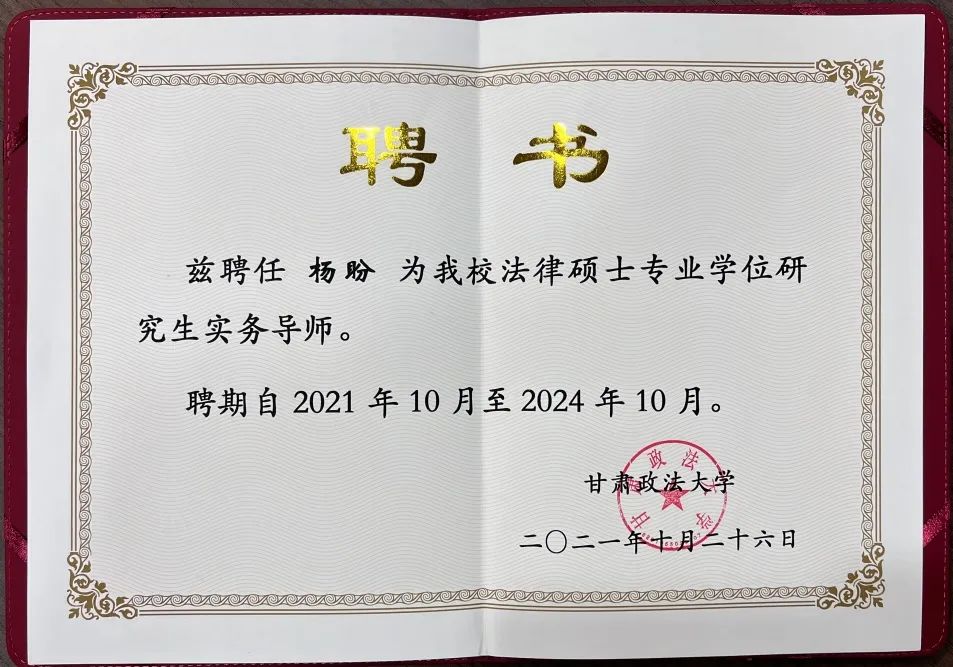 聘 书
兹聘任 杨盼 为我校法律硕士专业学位研
究生实务导师。
聘期自 2021 年 10 月至 2024 年 10 月。
甘肃政法大学
二〇二一年十月二十六日
甘肃政法大学